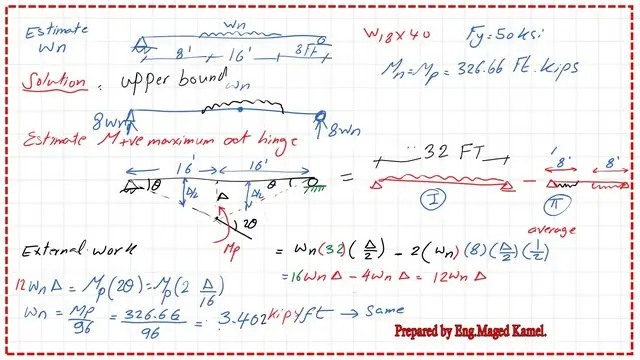 Estimate
Wn
Wn
8'
16'
8FT
W18x40
Fy=50ksi
Mn=Mp=326.66 FT.kips
Solution: upper bound
Wn
8wn
8wn
Estimate M+ve maximum at hinge
16'
16'
θ
Δ/2
Δ
Δ/2
θ
2θ
Mp
=
32 FT
I
-
8'
8'
II
average
External work
= Wn(32)(Δ/2) - 2(Wn)(8)(Δ/2)(1/2)
= 16WnΔ - 4WnΔ = 12WnΔ
12WnΔ = Mp(2θ) = Mp(2 Δ/16)
Wn = Mp/96 = 326.66/96 = 3.402 kips/ft → Same
Prepared by Eng.Maged Kamel.